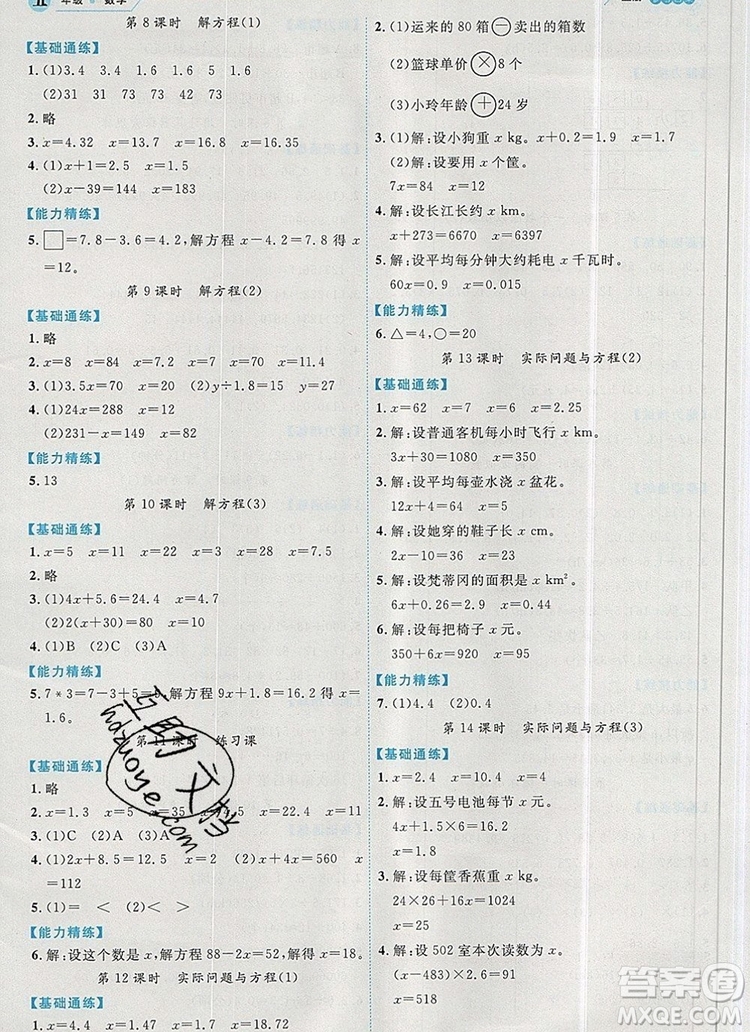 五年级·数学
第8课时 解方程(1)
【基础通练】
1.(1)3.4 3.4 1.6 1.6 5 1.6
(2)31 31 73 42 73
2.略
3.x=4.32 x=13.7 x=16.8 x=16.35
4.(1)x+1=2.5 x=1.5
(2)x-39=144 x=183
【能力精练】
5.□=7.8-3.6=4.2,解方程 x-4.2=7.8 得 x
=12。
第9课时 解方程(2)
【基础通练】
1.略
2.x=8 x=84 x=36 x=7 x=11.4
3.(1)3.5x=70 x=20 (2)y÷1.8=15 y=27
4.(1)24x=288 x=12
(2)231-x=149 x=82
【能力精练】
5.13
第10课时 解方程(3)
【基础通练】
1.x=5 x=11 x=3 x=28 x=7.5
2.略
3.(1)4x+5.6=24.4 x=4.7
(2)2(x-30)=100 x=80
4.(1)B (2)C (3)A
【能力精练】
5.7*3=7-3+5=9,解方程 9x+1.8=16.2 得 x=
1.6。
第11课时 练习课
【基础通练】
1.略
2.x=1.3 x=5 x=35 x=22.4 x=11
3.(1)C (2)A (3)A
4.(1)2x+x=135 x=45 (2)x+4x=560 x
=112
5.(1)= < (2)< >
【能力精练】
6.解:设这个数是 x,解方程 88-2x=52,解得 x=18。
第12课时 实际问题与方程(1)
【基础通练】
1.x=9.4 x=4 x=1.9 x=18.72
2.(1)运来的 80 箱 - 卖出的箱数
(2)篮球单价 × 8 个
(3)小玲年龄 + 24 岁
3.(1)解:设小狗重 x kg。 x+0.2=1.9 x=1.7
(2)解:设要用 x 个筐。
7x=84 x=12
4.解:设长江长约 x km。
x+273=6670 x=6397
5.解:设平均每分钟大约耗电 x 千瓦时。
60x=0.9 x=0.015
【能力精练】
6.△=4,○=20
第13课时 实际问题与方程(2)
【基础通练】
1.x=62 x=7 x=6 x=2.25
2.解:设普通客机每小时飞行 x km。
3x+30=1090 x=350
3.解:设平均每壶水浇 x 盆花。
12x+4=100 x=8
4.解:设她穿的鞋子长 x cm。
2x-10=36 x=23
5.解:设梵蒂冈的面积是 x km²。
6x+0.26=2.9 x=0.44
6.解:设每把椅子 x 元。
350+6x=920 x=95
【能力精练】
7.(1)4.4 (2)0.4
第14课时 实际问题与方程(3)
【基础通练】
1.x=2.4 x=4 x=5 x=4
2.解:设五号电池每节 x 元。
4x+1.5×6=16.2
x=1.8
3.解:设每筐香蕉重 x kg。
24×26+16x=1024
x=25
4.解:设 502 室本次读数为 x。
(x-483)×2.6=91
x=518
hdzuoye.com
答案圈
MXQE.COM